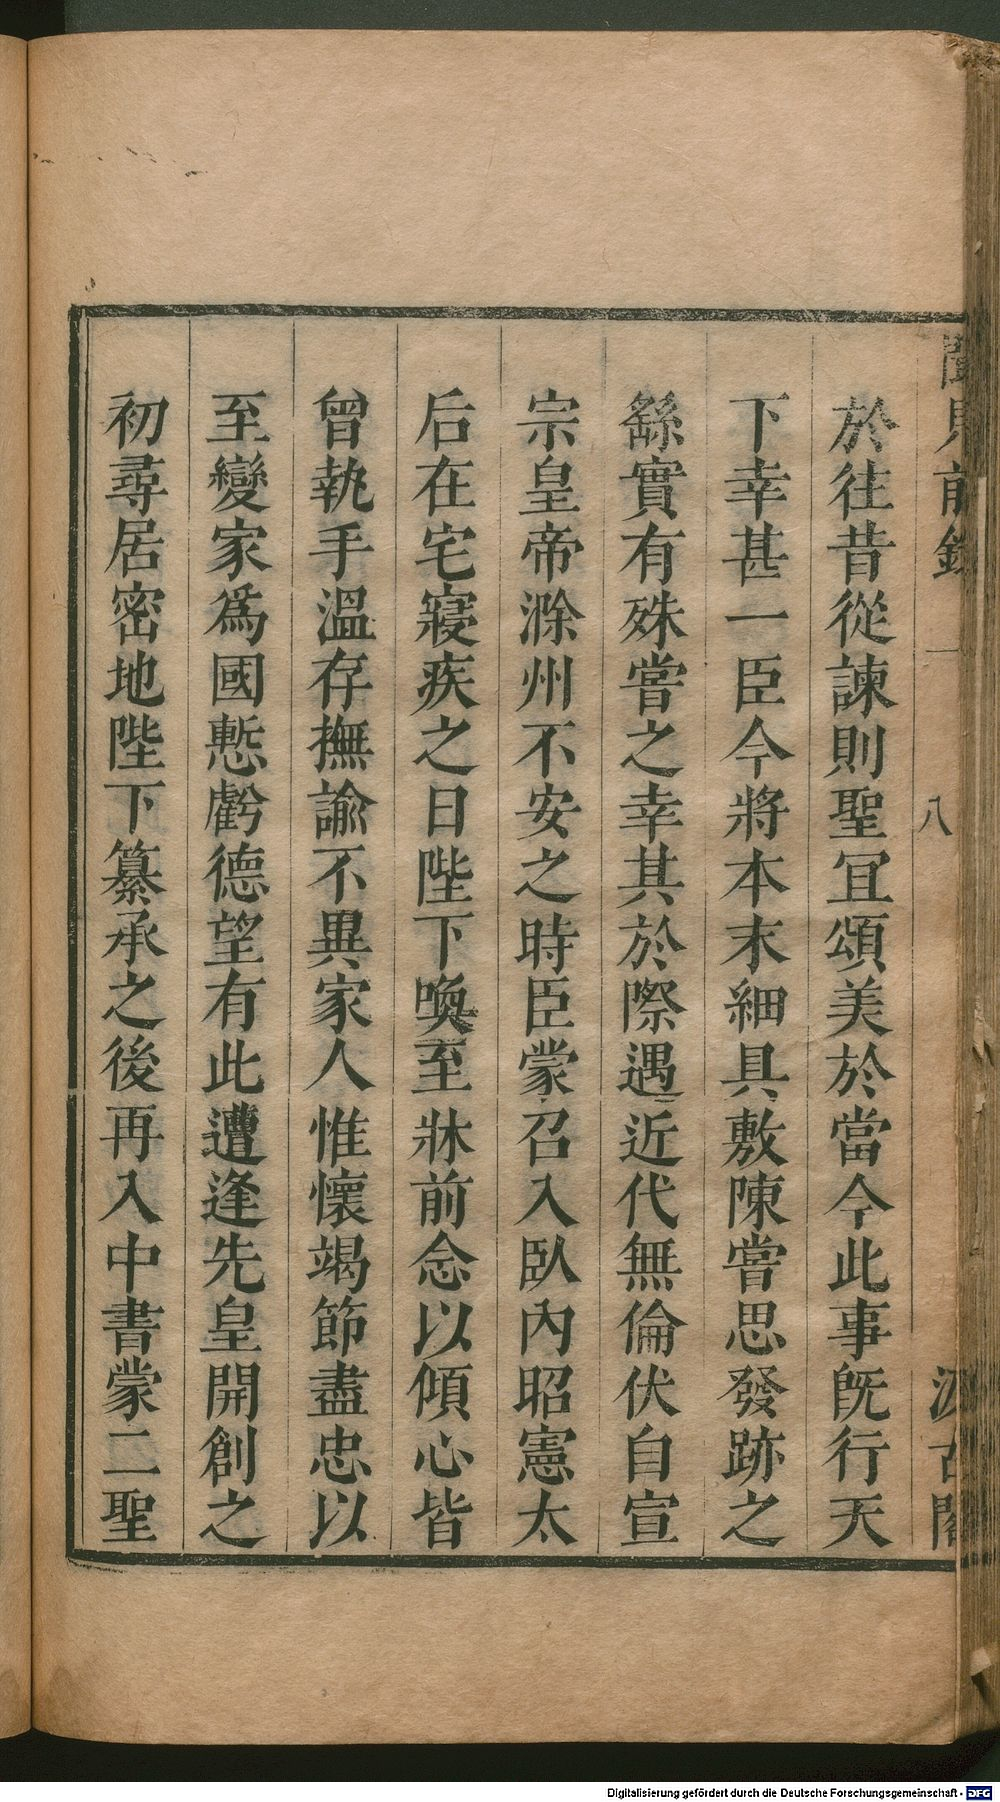 聞見前錄
一
八
汲古閣
於往昔從諫則聖冝頌美於當今此事旣行天
下幸甚一臣今將本末細具敷陳嘗思發跡之
繇實有殊常之幸其於際遇近代無倫伏自宣
宗皇帝滁州不安之時臣蒙召入臥內昭憲太
后在宅寢疾之日陛下喚至牀前念以傾心皆
曾執手溫存撫諭不異家人惟懷竭節盡忠以
至變家爲國慙虧德望有此遭逢先皇開創之
初尋居密地陛下纂承之後再入中書蒙二聖
Digitalisierung gefördert durch die Deutsche Forschungsgemeinschaft - DFG